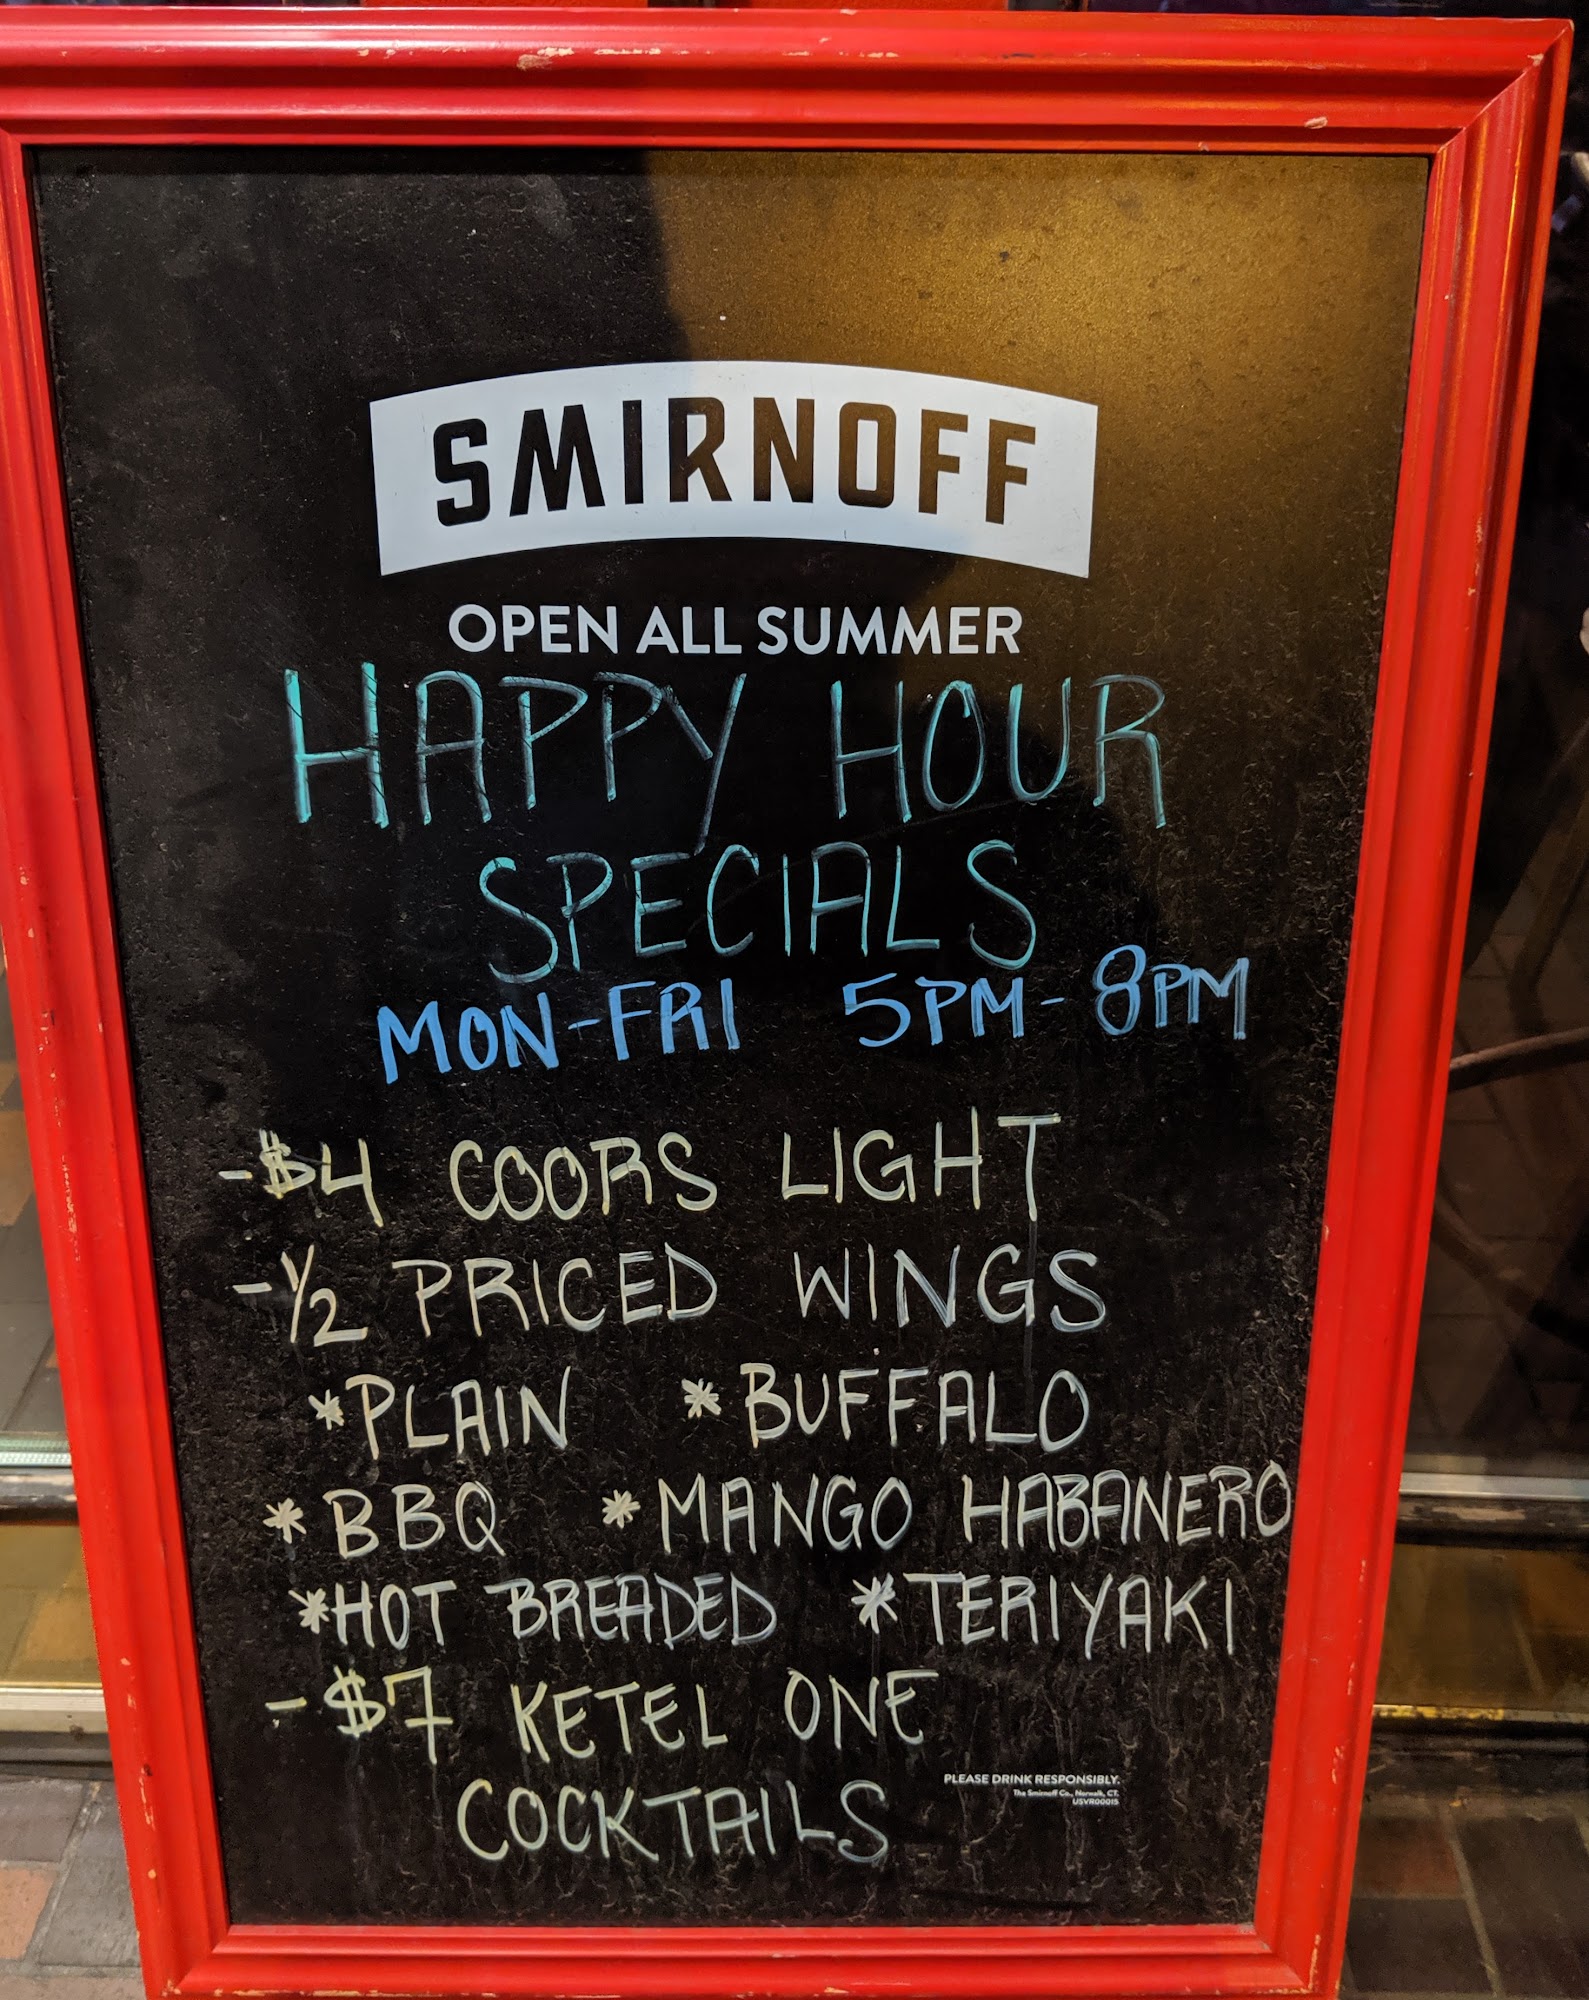 SMIRNOFF
OPEN ALL SUMMER
HAPPY HOUR
SPECIALS
MON-FRI 5PM-8PM
-$4 COORS LIGHT
-½ PRICED WINGS
*PLAIN *BUFFALO
*BBQ *MANGO HABANERO
*HOT BREADED *TERIYAKI
-$7 KETEL ONE
COCKTAILS
PLEASE DRINK RESPONSIBLY.
The Smirnoff Co., Norwalk, CT.
USVR00015